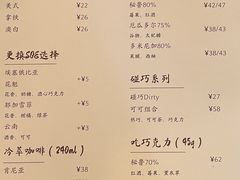 美式 ¥22
拿铁 ¥26
澳白 ¥26
更换SOE选择
埃塞俄比亚 +5
花魁
花香、甜橙、酒心巧克力
耶加雪菲 +5
花香、柑橘、绿茶
云南 +3
酒香、可可
冷萃咖啡（290ml）
肯尼亚 ¥38
秘鲁80% ¥42/47
莓果、红酒
厄瓜多尔75% ¥38/43
多米尼加80% ¥38/43
碰巧系列
碰巧Dirty ¥27
可可组合 ¥58
吃巧克力（95g）
秘鲁70% ¥62